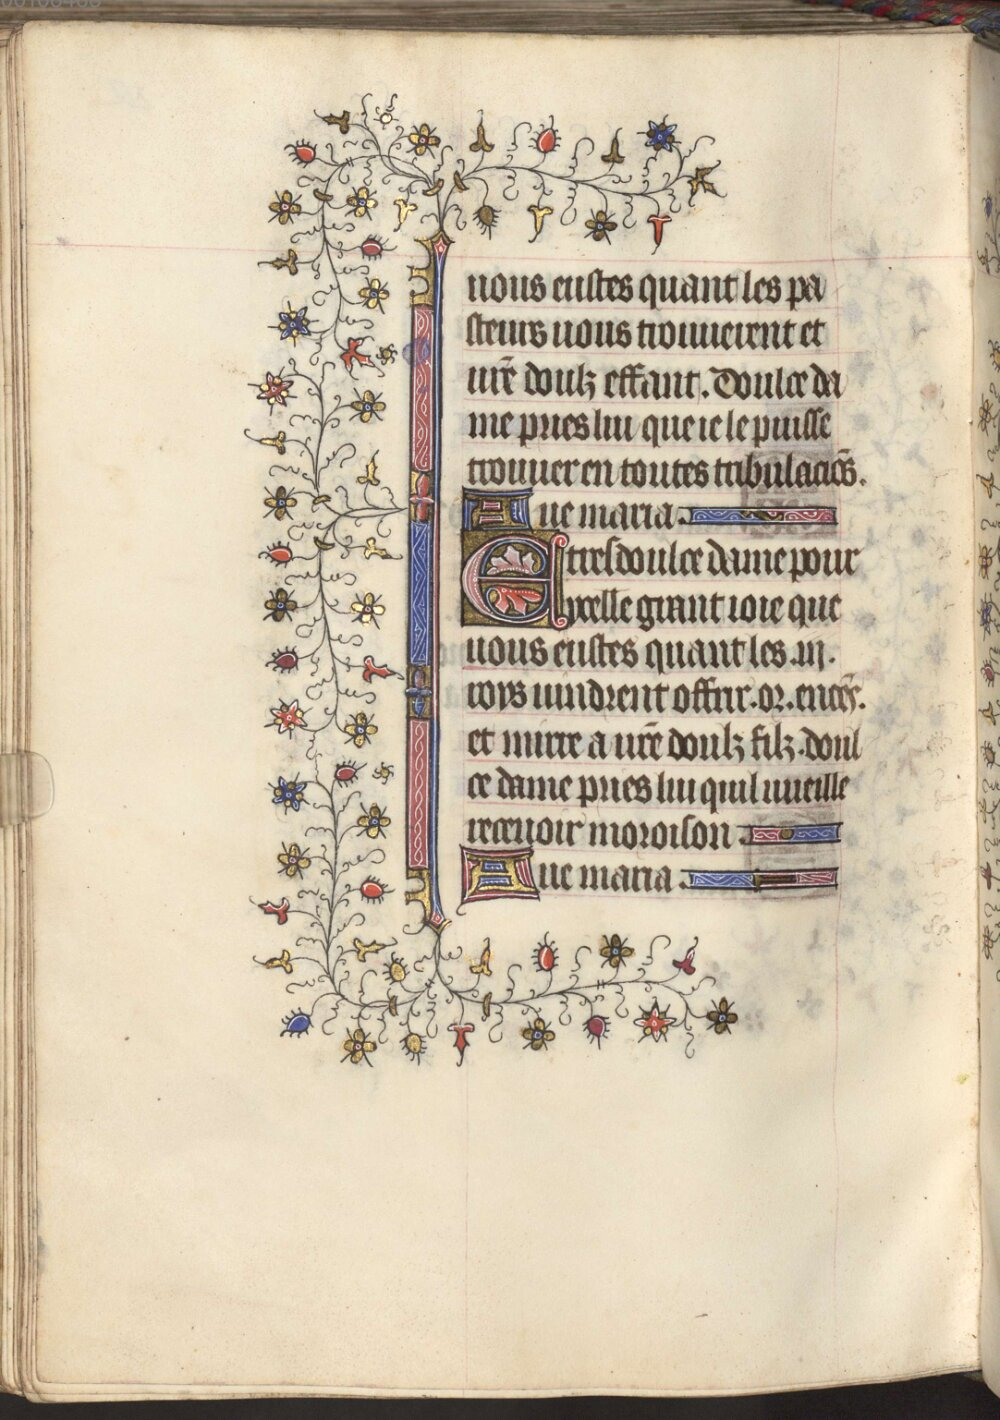 uous eustes quant les pa
steurs uous trouuerent et
ur̄e doulz effant. Doulce da
me pries lui que ie le puisse
trouuer en toutes tribulaciōs.
Aue maria.
E tresdoulce dame pour
ycelle grant ioie que
uous eustes quant les .iij.
roys uindrent offrir. or. encēs.
et mirre a ur̄e doulz filz. doul
ce dame pries lui quil uueille
receuoir moroison
Aue maria.